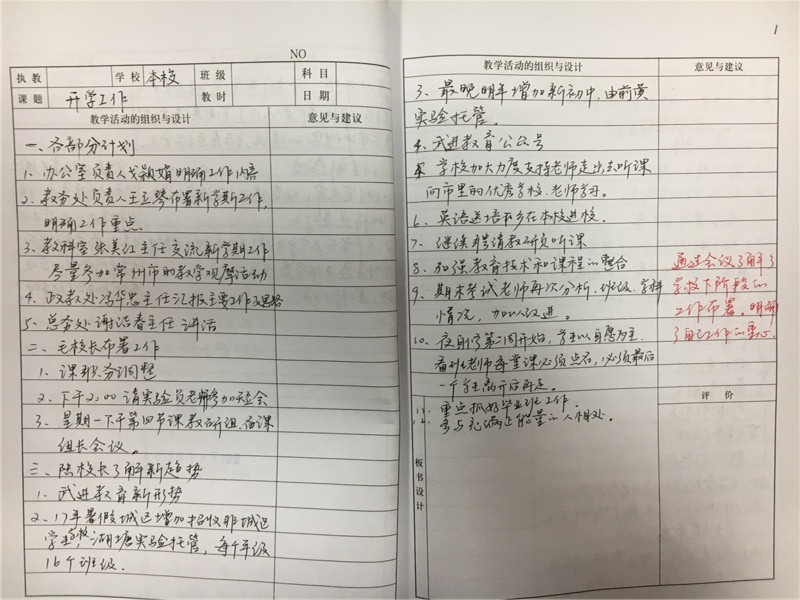 NO
执教 学校 本校 班级 科目
课题 开学工作 教时 日期
教学活动的组织与设计 意见与建议
一、各部分计划
1. 办公室负责人戈颖娟明确工作内容
2. 教务处负责人王立琴布署新学期工作,
明确工作重点.
3. 教科室张美红主任交流新学期工作
尽量参加常州市的教学观摩活动
4. 政教处冯华忠主任汇报主要工作思路
5. 总务处谢浩春主任讲话
二、毛校长布署工作
1. 课职务调整
2. 下午2:00请实验员老师参加短会
3. 星期一下午第四节课教研组、备课
组长会议。
三、陆校长了解新趋势
1. 武进教育新形势
2. 17年暑假城区增加招收非城区
学生学校,湖塘实验托管,每个年级
16个班级.
1
教学活动的组织与设计 意见与建议
3. 最晚明年增加新初中,由前黄
实验托管。
4. 武进教育公众号
5. 学校加大力度支持老师走出去听课
向市里的优秀学校、老师学习。
6. 英语送培在本校进校。
7. 继续聘请教研员听课
8. 加强教育技术和课程的整合
9. 期末考试老师再次分析、班级、学科
情况,加以改进。
10. 夜自修第二周开始,学生以自愿为主,
看班老师每堂课必须点名,必须最后
一个学生离开后再走。
通过会议了解了
学校下阶段的
工作布署,明确
了自己工作的重心
评价
13. 重点抓好毕业班工作.
14. 多与充满正能量的人相处。
板书设计